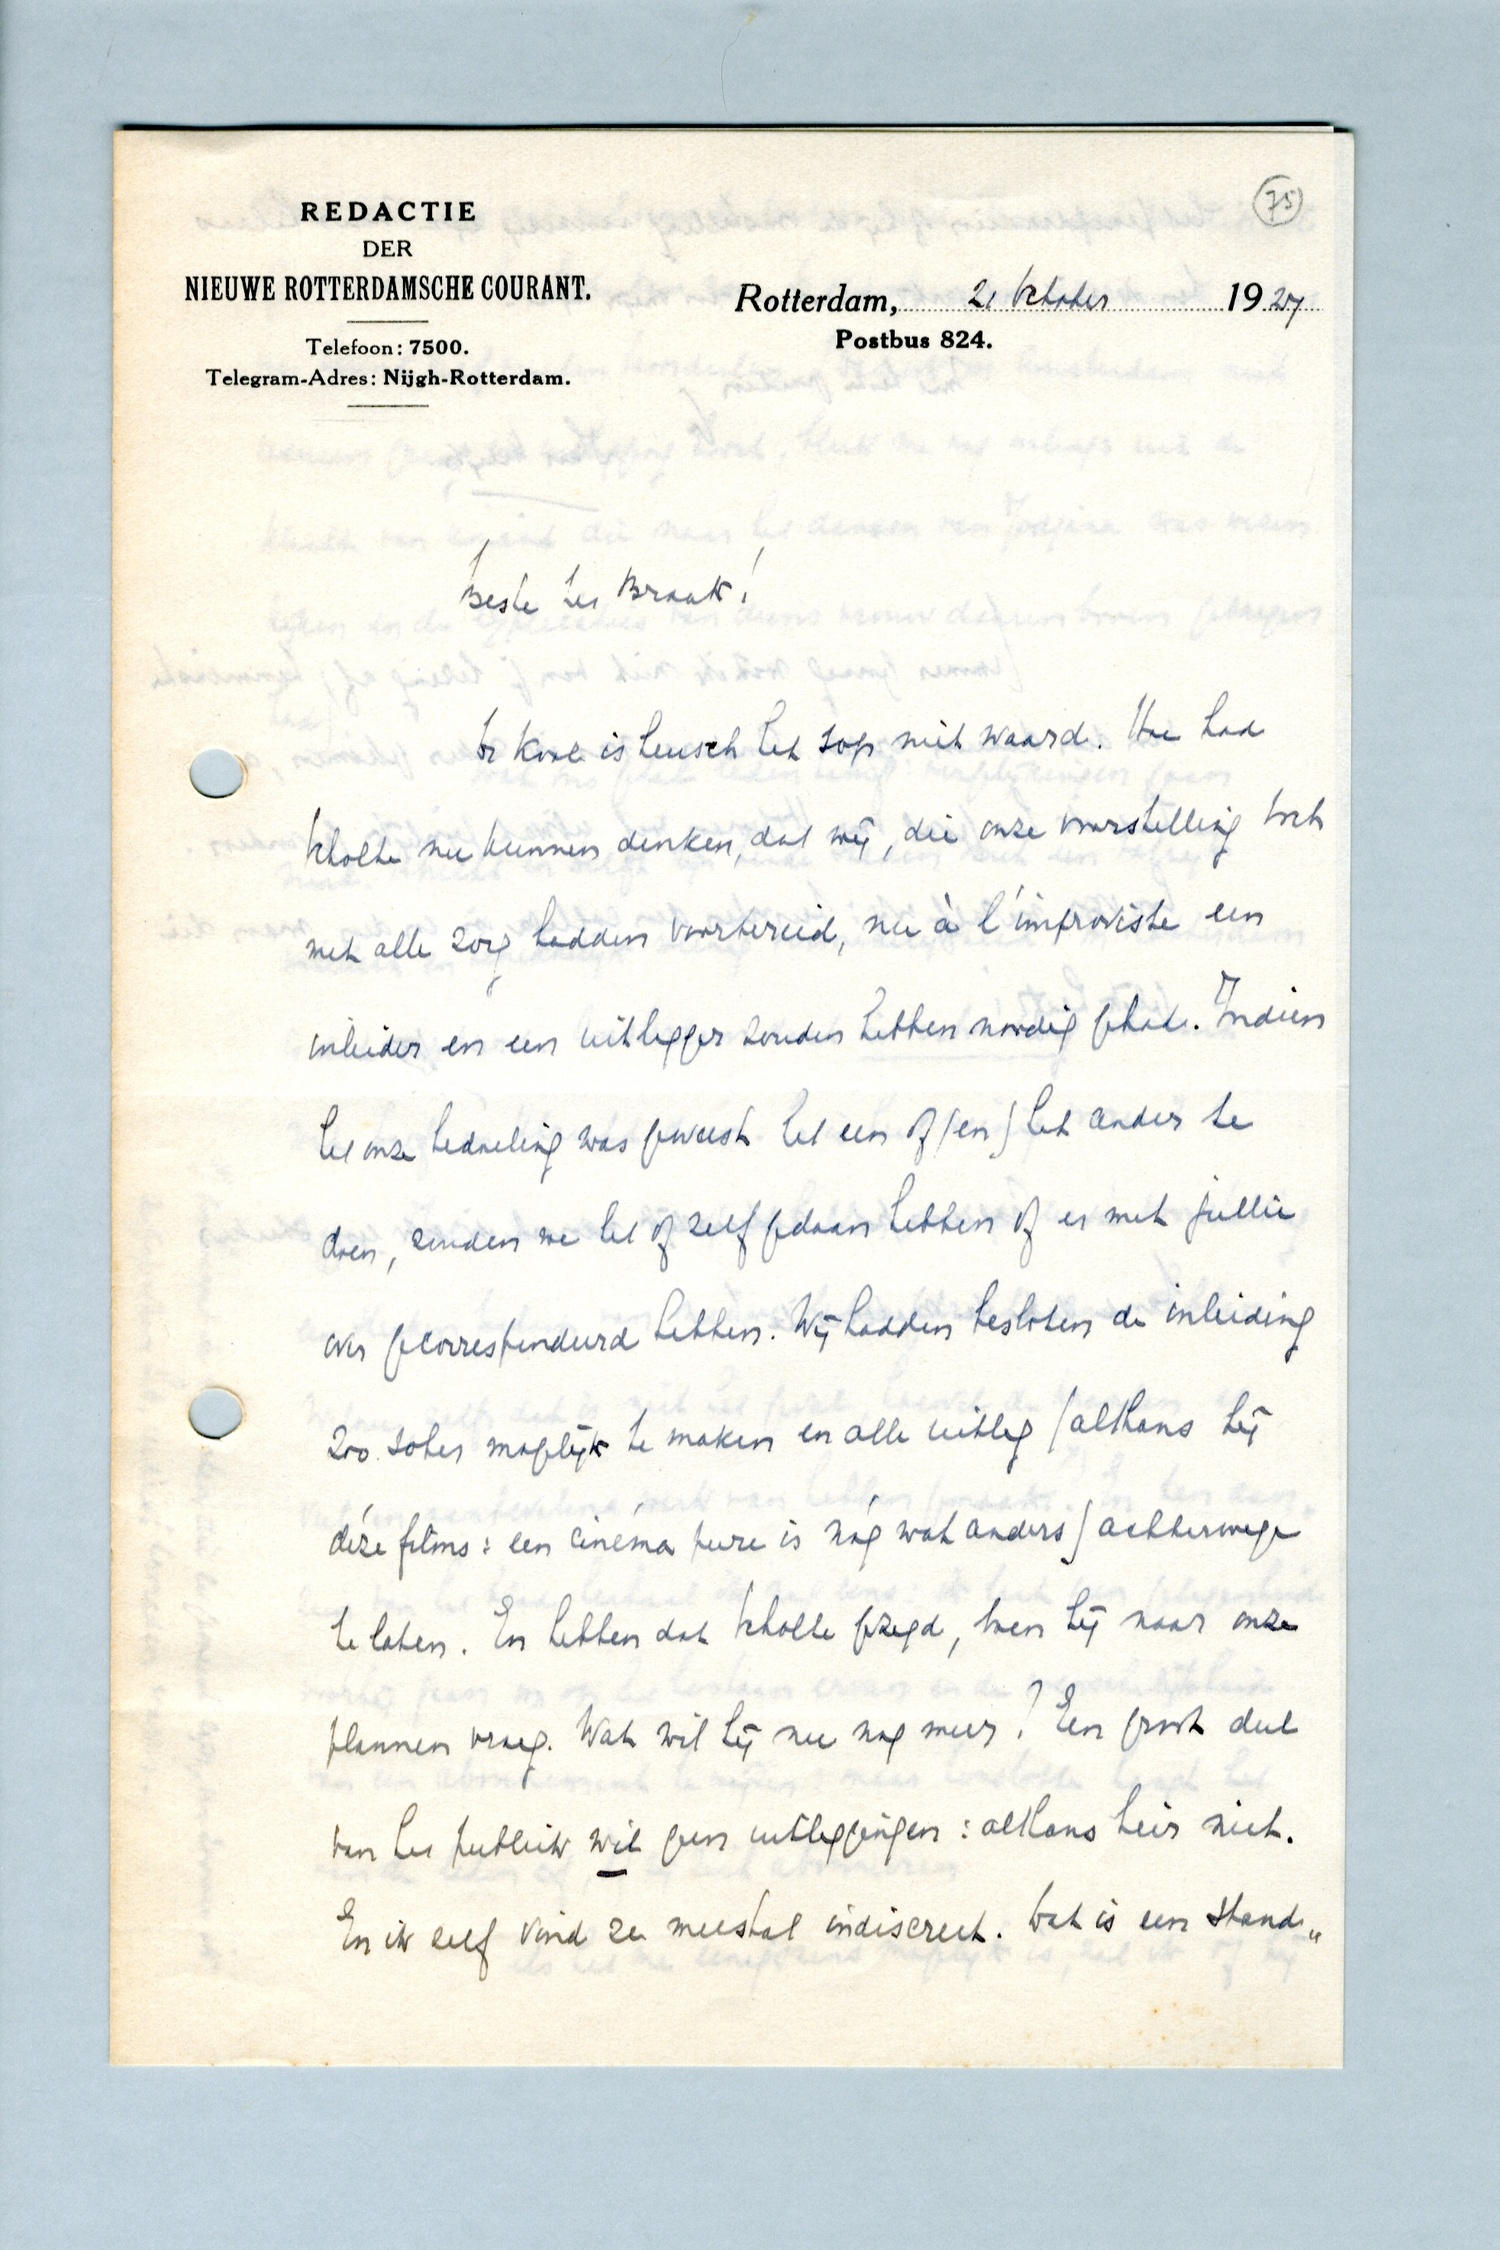 75
REDACTIE
DER
NIEUWE ROTTERDAMSCHE COURANT.
Telefoon: 7500.
Telegram-Adres: Nijgh-Rotterdam.
Rotterdam, 21 October 1927
Postbus 824.
Beste ter Braak!
De kool is heusch het sop niet waard. Hoe had
Scholte nu kunnen denken, dat wij, die onze voorstelling toch
met alle zorg hadden voorbereid, nu à l'improviste een
inleider en een uitlegger zouden hebben noodig gehad. Indien
het onze bedoeling was geweest het een of (en) het ander te
doen, zouden we het of zelf gedaan hebben of er met jullie
over gecorrespondeerd hebben. Wij hadden besloten de inleiding
zoo sober mogelijk te maken en alle uitleg (althans bij
déze films: een cinéma pure is nóg wat anders) achterwege
te laten. En hebben dat Scholte gezegd, toen hij naar onze
plannen vroeg. Wat wil hij nu nog meer? Een groot deel
van het publiek wil geen uitleggingen: althans hier niet.
En ik zelf vind ze meestal indiscreet. Dat is een stand„